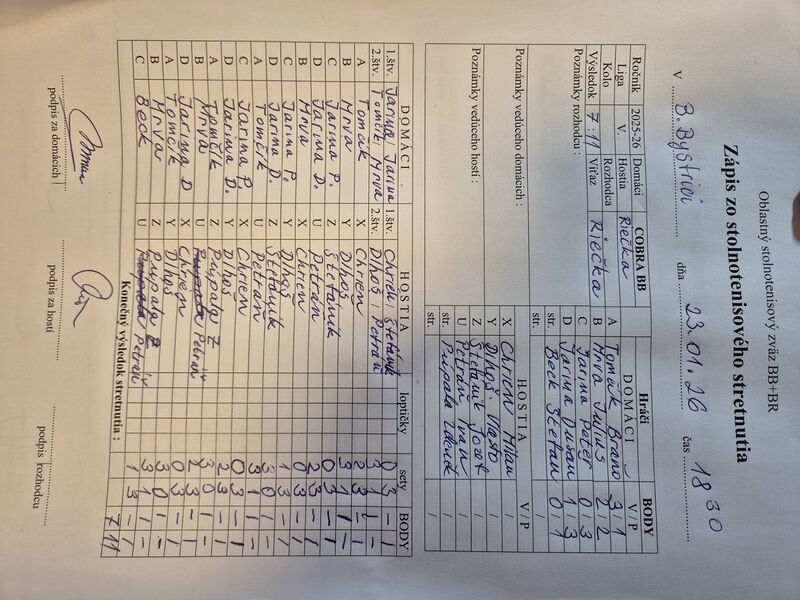 Oblastný stolnotenisový zväz BB+BR
Zápis zo stolnotenisového stretnutia
V B. Bystrici dňa 23.01.26 čas 18 30
Ročník 2025-26 Domáci COBRA BB
Liga V. Hostia Riečka
Kolo Rozhodca
Výsledok 7:11 Víťaz Riečka
Poznámky rozhodcu :
Poznámky vedúceho domácich :
Poznámky vedúceho hostí :
Hráči BODY
DOMÁCI V / P
A Tomčík Braňo 3 / 1
B Mrva Július 2 / 2
C Jarina Peter 0 / 3
D Jarina Dušan 1 / 3
str. Beck Štefan 0 / 1
str. /
HOSTIA V / P
X Chrien Milan /
Y Dlhoš Vlasto /
Z Štefanik Jozef /
U Petráň Ivan /
str. Púpala /
str. /
DOMÁCI HOSTIA loptičky sety BODY
1.štv. Jarina Jarina 1.štv. Chrien Štefanik 0 3 - 1
2.štv. Tomčík Mrva 2.štv. Dlhoš Petráň 3 1 1 -
A Tomčík X Chrien 2 3 - 1
B Mrva Y Dlhoš 3 1 1 -
C Jarina P. Z Štefanik 0 3 - 1
D Jarina D. U Petráň 2 3 - 1
B Mrva X Chrien 0 3 - 1
C Jarina P. Y Dlhoš 1 3 - 1
D Jarina D. Z Štefanik 1 3 - 1
A Tomčík U Petráň 3 0 1 -
C Jarina P. X Chrien 0 3 - 1
D Jarina D. Y Dlhoš 2 3 - 1
A Tomčík Z Púpala Z 3 0 1 -
B Mrva U Petráň 2 3 - 1
D Jarina D X Chrien 0 3 - 1
A Tomčík Y Dlhoš 3 0 1 -
B Mrva Z Púpala Z 3 1 1 -
C Beck U Petráň 1 3 - 1
Konečný výsledok stretnutia : 7 11
podpis za domácich
podpis za hostí
podpis rozhodcu